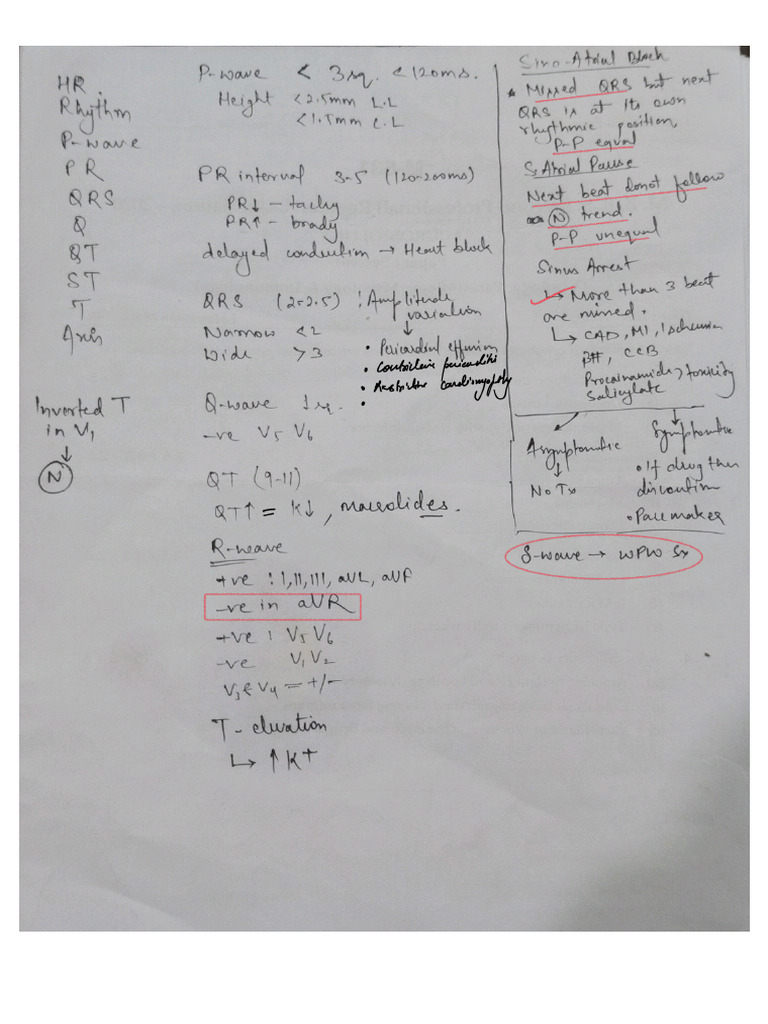 HR.
Rhythm
P-wave
PR
QRS
Q
QT
ST
T
Axis
Inverted T
in V1
↓
N
P-wave < 3 sq. < 120ms.
Height < 2.5mm L.L
< 1.5mm C.L
PR interval 3-5 (120-200ms)
PR↓ - tachy
PR↑ - brady
delayed conduction → Heart block
QRS (2-2.5) : Amplitude
variation
↓
Narrow < 2
Wide > 3
• Pericardial effusion
• Constrictive pericarditis
• Restrictive cardiomyopathy
•
Q-wave 1 sq.
-ve V5 V6
QT (9-11)
QT↑ = K↓, macrolides.
R-wave
+ve : I, II, III, aVL, aVF
-ve in aVR
+ve : V5 V6
-ve V1 V2
V3 & V4 = +/-
T- elevation
↳ ↑ K+
Sino-Atrial Block
* Missed QRS but next
QRS is at its own
rhythmic position,
P-P equal
S. Atrial Pause
Next beat donot follow
N trend.
P-P unequal
Sinus Arrest
↳ More than 3 beat
are missed.
↳ CAD, MI, Ischemia
CCB
Procainamide, toxicity
Salicylate
Asymptomatic
↓
No Tx
Symptomatic
• If drug then
discontinue
• Pacemaker
δ-wave → WPW Sx